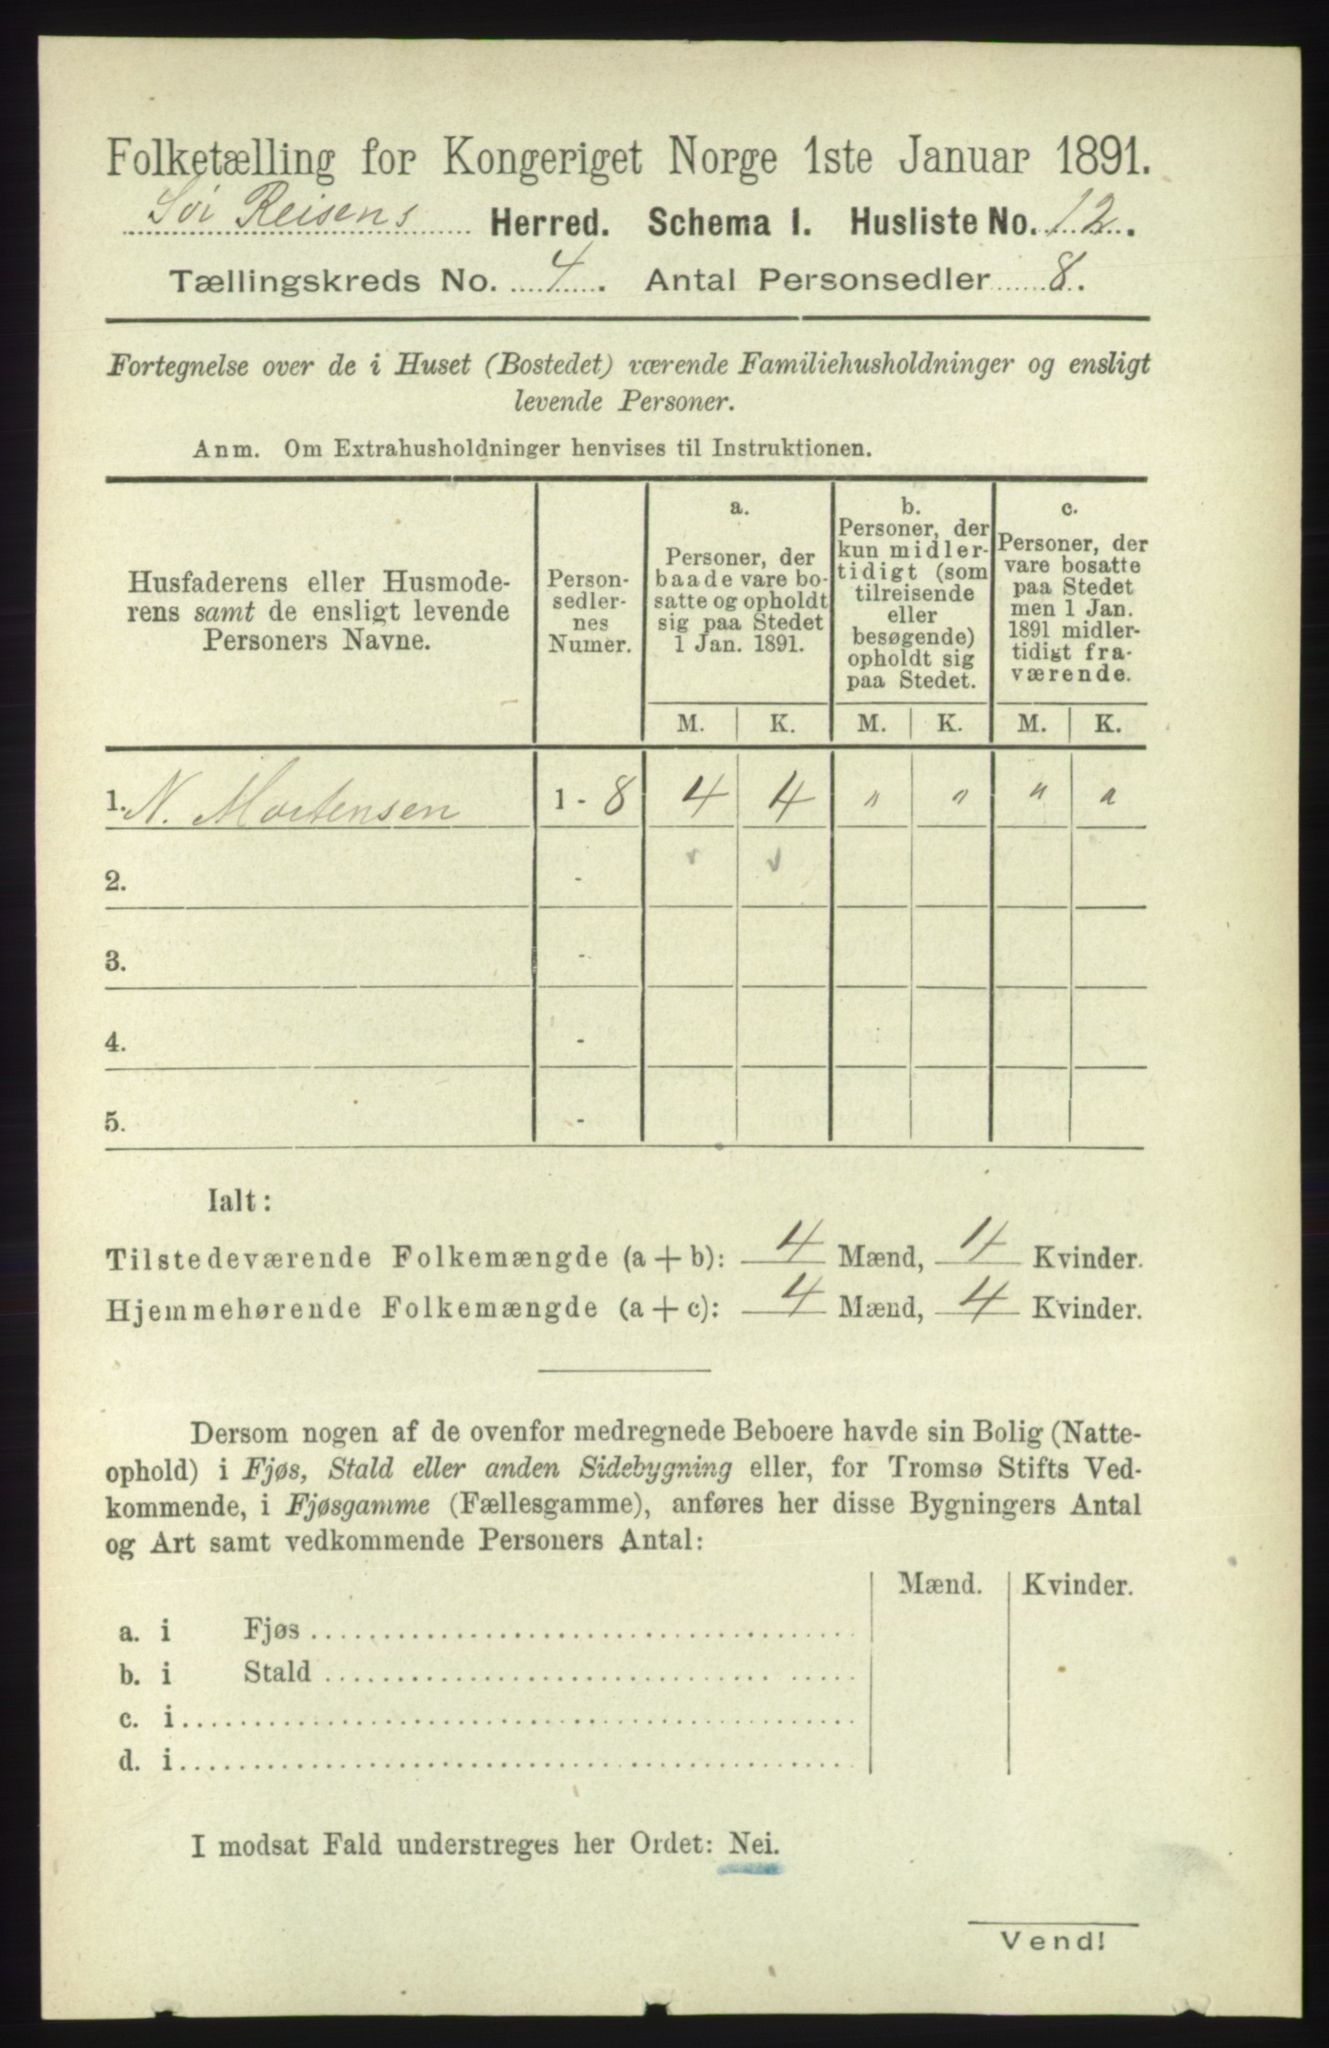 Folketælling for Kongeriget Norge 1ste Januar 1891.
Sør Reisens Herred. Schema I. Husliste No. 12.
Tællingskreds No. 4. Antal Personsedler 8.
Fortegnelse over de i Huset (Bostedet) værende Familiehusholdninger og ensligt
levende Personer.
Anm. Om Extrahusholdninger henvises til Instruktionen.
Husfaderens eller Husmode-
rens samt de ensligt levende
Personers Navne.
Person-
sedler-
nes
Numer.
a.
Personer, der
baade vare bo-
satte og opholdt
sig paa Stedet
1 Jan. 1891.
b.
Personer, der
kun midler-
tidigt (som
tilreisende
eller
besøgende)
opholdt sig
paa Stedet.
c.
Personer, der
vare bosatte
paa Stedet
men 1 Jan.
1891 midler-
tidigt fra-
værende.
M. K. M. K. M. K.
1. N. Mortensen 1 - 8 4 4 " " " "
2. -
3. -
4. -
5. -
Ialt:
Tilstedeværende Folkemængde (a + b): 4 Mænd, 4 Kvinder.
Hjemmehørende Folkemængde (a + c): 4 Mænd, 4 Kvinder.
Dersom nogen af de ovenfor medregnede Beboere havde sin Bolig (Natte-
ophold) i Fjøs, Stald eller anden Sidebygning eller, for Tromsø Stifts Ved-
kommende, i Fjøsgamme (Fællesgamme), anføres her disse Bygningers Antal
og Art samt vedkommende Personers Antal:
Mænd. Kvinder.
a. i Fjøs
b. i Stald
c. i
d. i
I modsat Fald understreges her Ordet: Nei.
Vend!